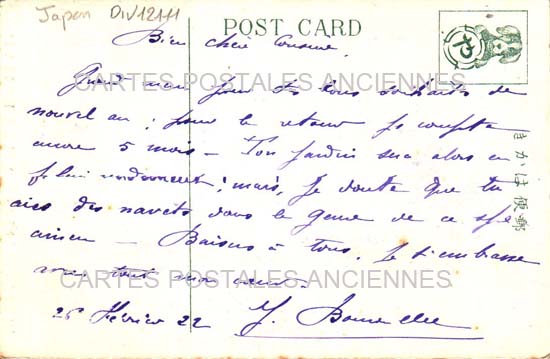 Japon DIV12111
POST CARD
Bien chère Cousine,
Grand merci pour tes bons souhaits de
nouvel an ; pour le retour je compte
encore 5 mois — Ton jardin sera alors en
; mais, je doute que tu
aies des navets dans le genre de ce
— Baisers à tous. Je t'embrasse
tout mon cœur.
26 Février 22
J.
きがは便郵
CARTES POSTALES ANCIENNES
CARTES POSTALES ANCIENNES